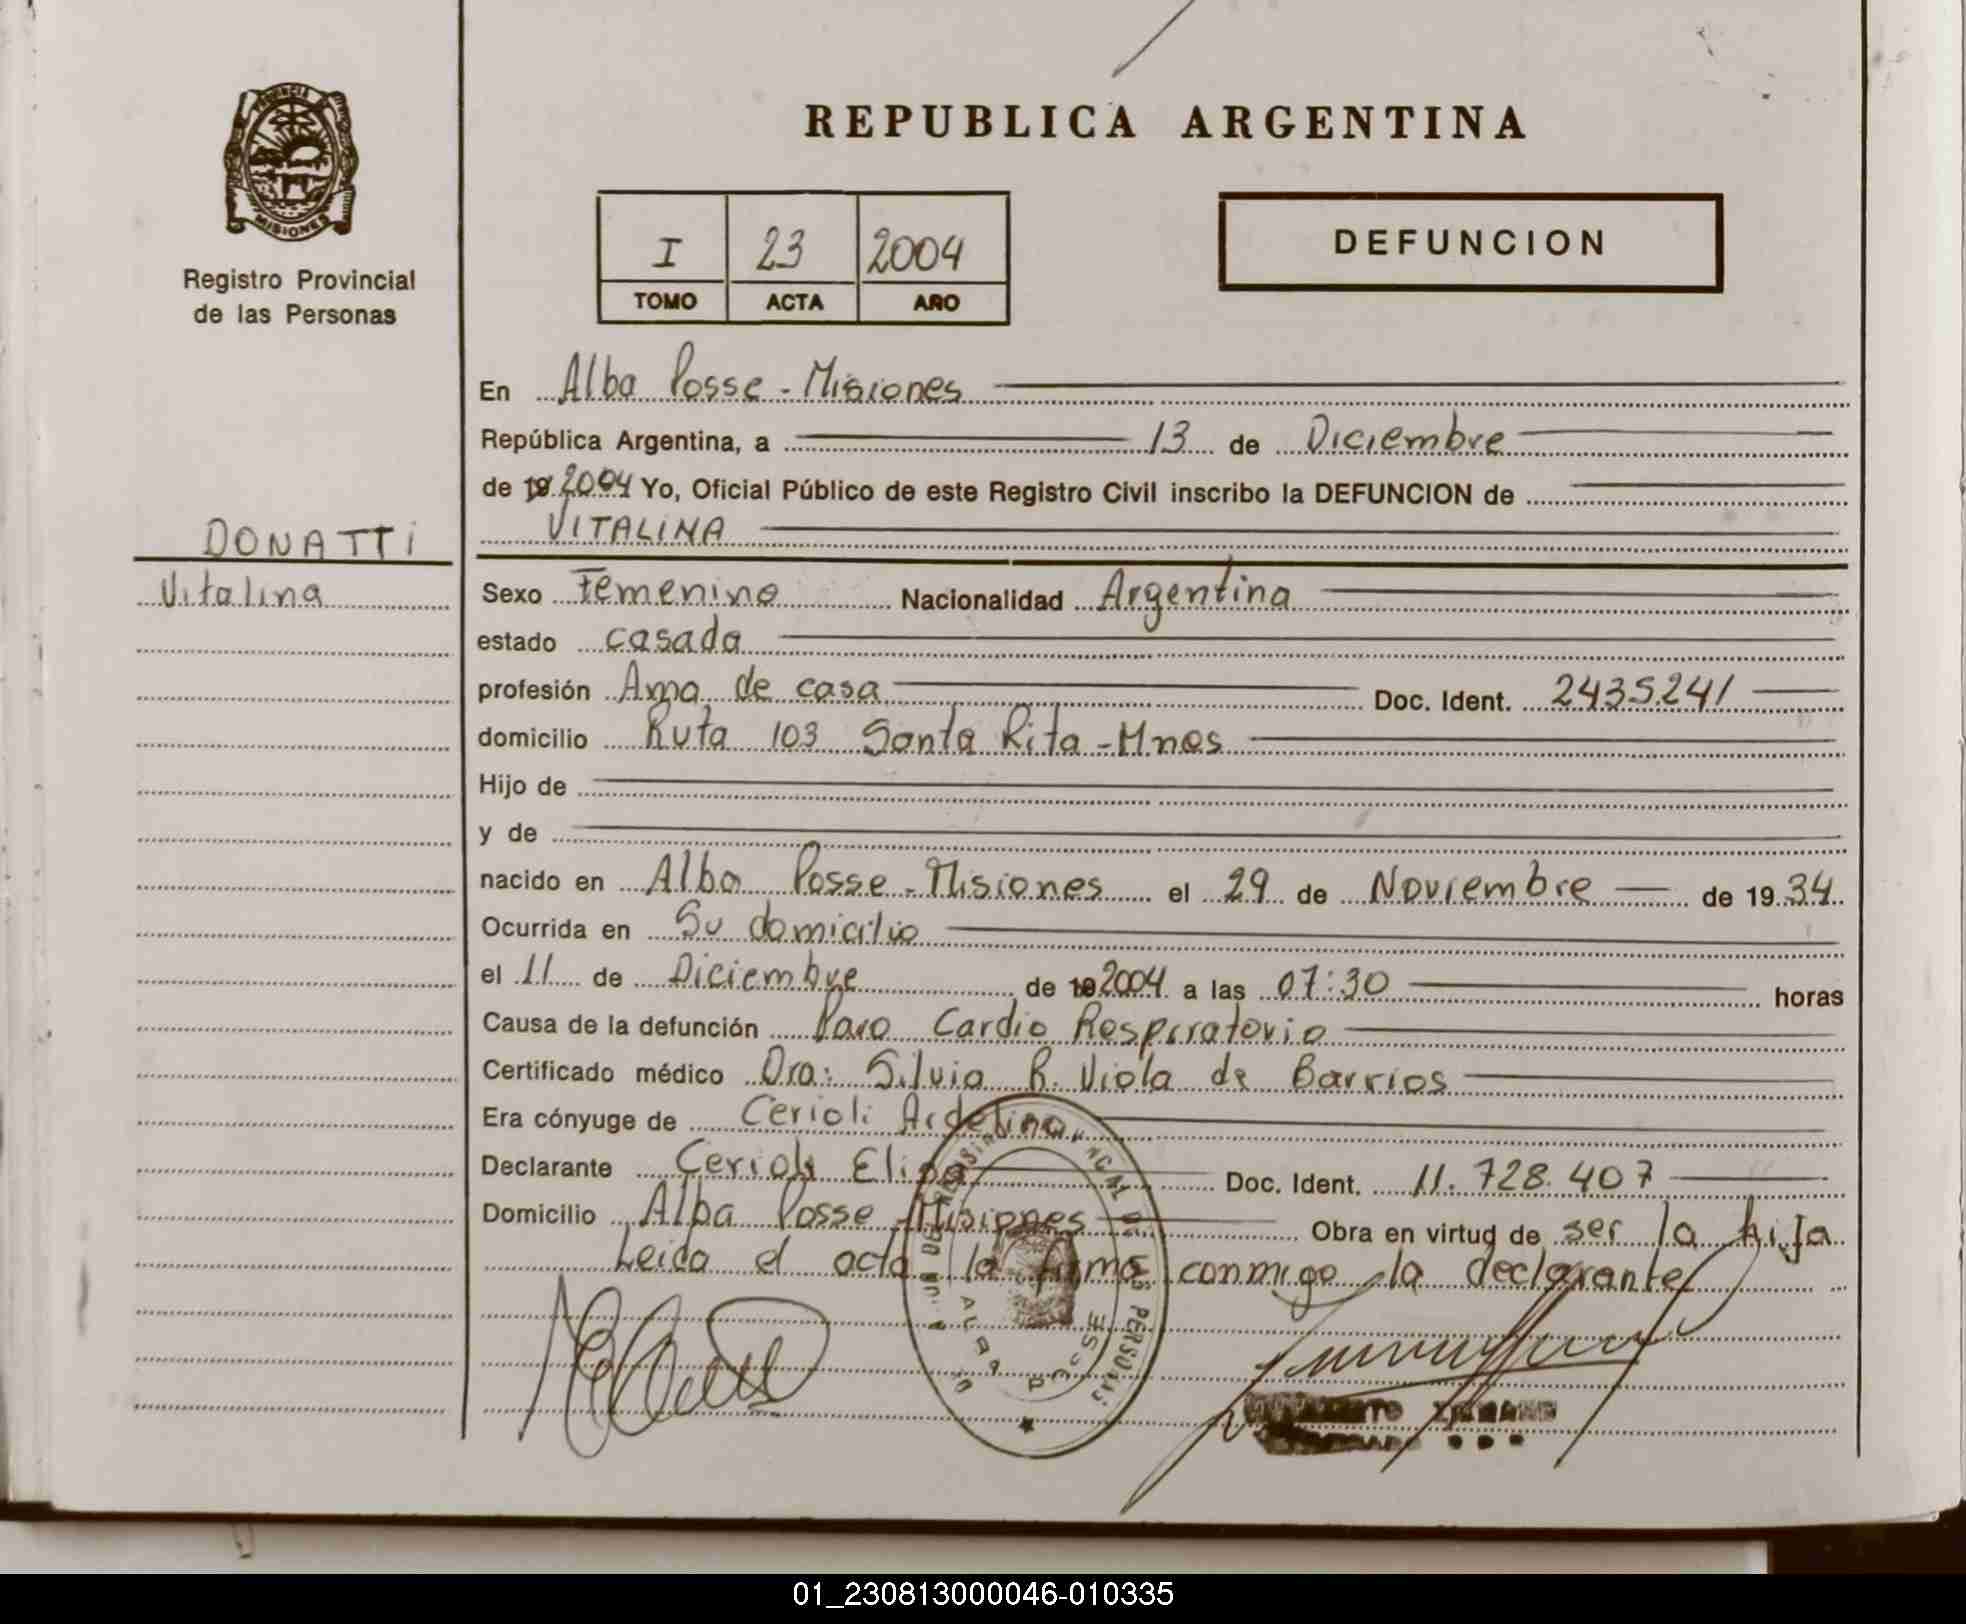 REPUBLICA ARGENTINA
PROVINCIA DE
MISIONES
Registro Provincial
de las Personas
I 23 2004
TOMO ACTA AÑO
DEFUNCION
En Alba Posse - Misiones
República Argentina, a 13 de Diciembre
de 19 2004 Yo, Oficial Público de este Registro Civil inscribo la DEFUNCION de
VITALINA
DONATTi
Vitalina
Sexo Femenino Nacionalidad Argentina
estado casada
profesión Ama de casa Doc. Ident. 2435.241
domicilio Ruta 103 Santa Rita - Mnes
Hijo de
y de
nacido en Alba Posse - Misiones el 29 de Noviembre de 19 34
Ocurrida en Su domicilio
el 11 de Diciembre de 19 2004 a las 07:30 horas
Causa de la defunción Paro Cardio Respiratorio
Certificado médico Dra: Silvia R. Viola de Barrios
Era cónyuge de Cerioli Ardelino
Declarante Cerioli Elisa Doc. Ident. 11.728.407
Domicilio Alba Posse - Misiones Obra en virtud de ser la hija
Leida el acta la firma conmigo la declarante
01_230813000046-010335